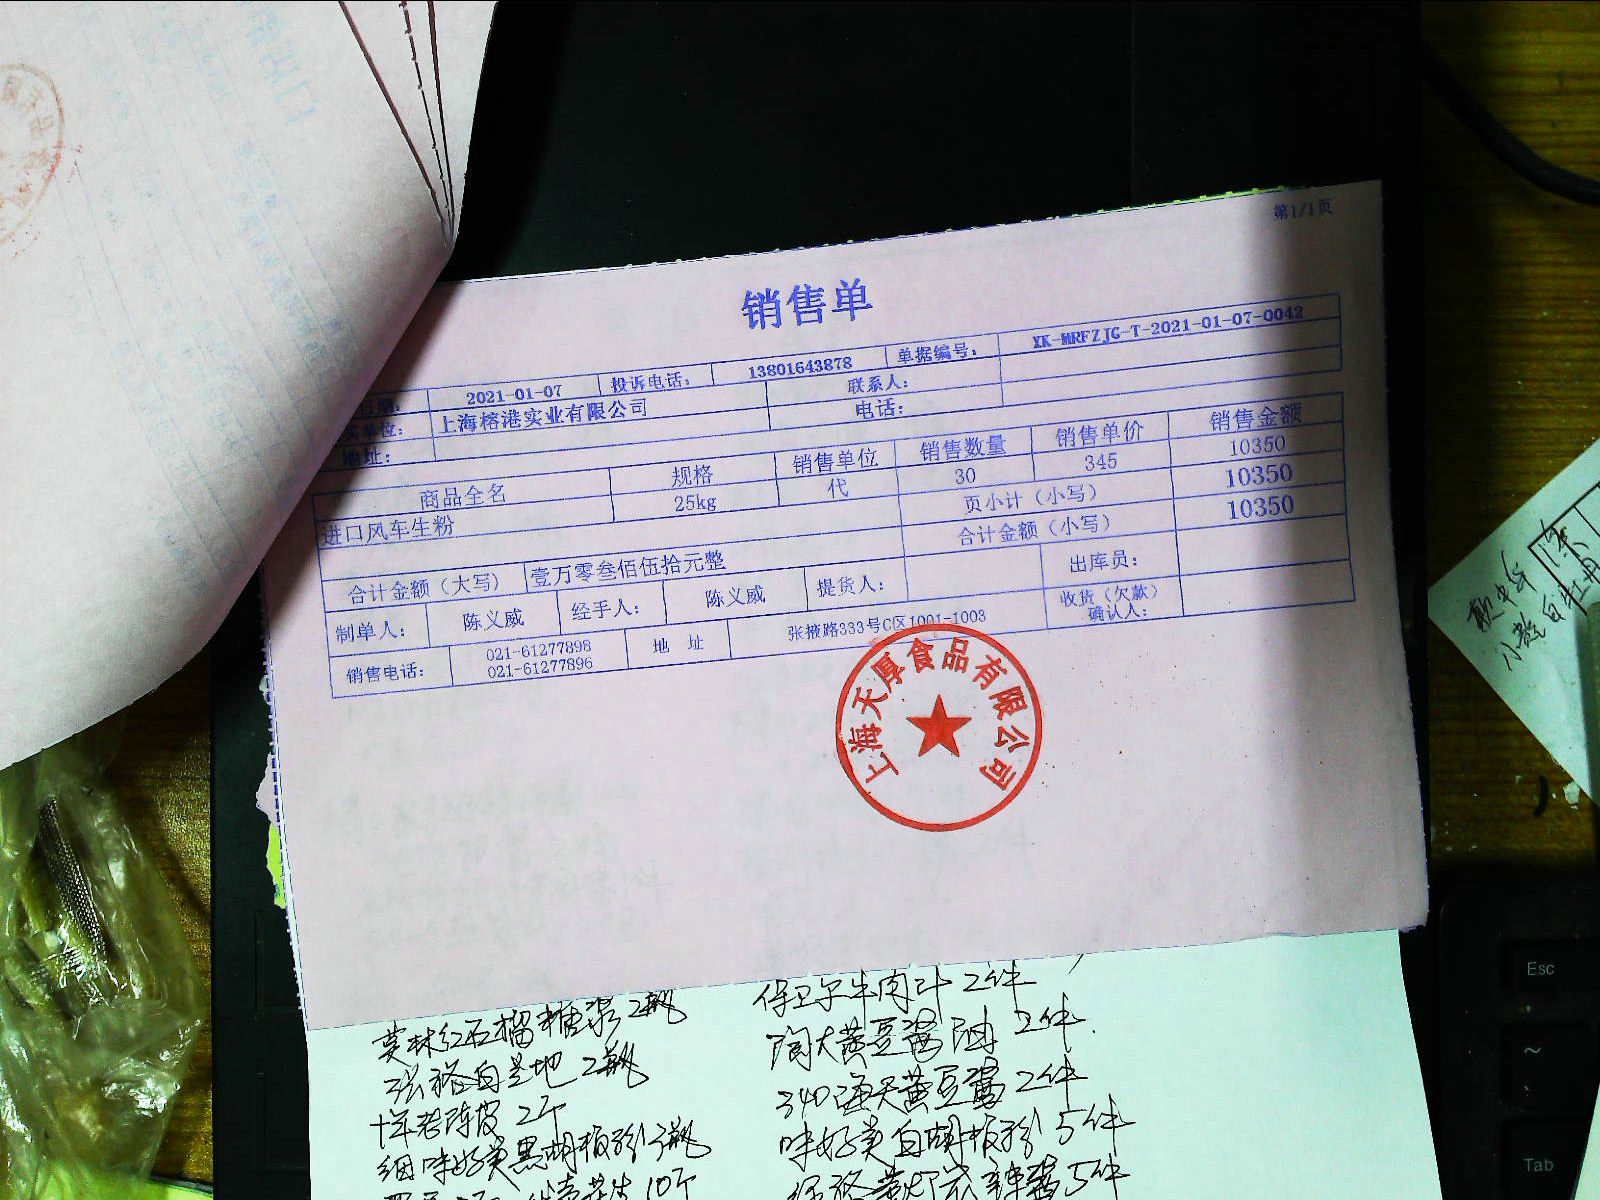 第1/1页
销售单
2021-01-07 投诉电话: 13801643878 单据编号: XK-MRFZJG-T-2021-01-07-0042
上海榕港实业有限公司 联系人:
地址: 电话:
商品全名 规格 销售单位 销售数量 销售单价 销售金额
进口风车生粉 25kg 代 30 345 10350
页小计（小写） 10350
合计金额（大写） 壹万零叁佰伍拾元整 合计金额（小写） 10350
制单人: 陈义威 经手人: 陈义威 提货人: 出库员:
销售电话: 021-61277898 021-61277896 地 址 张掖路333号C区1001-1003 收货（欠款）确认人:
上海天厚食品有限公司
莫林红石榴糖浆2瓶
张裕白兰地2瓶
十年老陈皮2个
细味好美黑胡椒粉3瓶
10个
保卫尔牛肉汁2件
淘大黄豆酱 2件
340海天黄豆酱2件
味好美白胡椒粉5件
5件
Esc
~
Tab